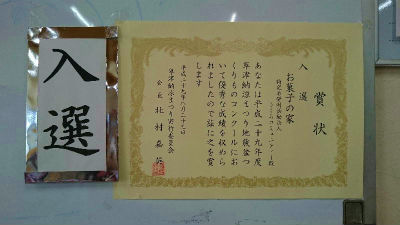 入選
賞状
入選
お菓子の家
あなたは平成二十九年度
草津納涼まつり地蔵盆つ
くりものコンクールにお
いて優秀な成績を収めら
れましたので茲に之を賞
します
平成二十九年八月二十七日
草津納涼まつり実行委員会
会長 北村嘉英